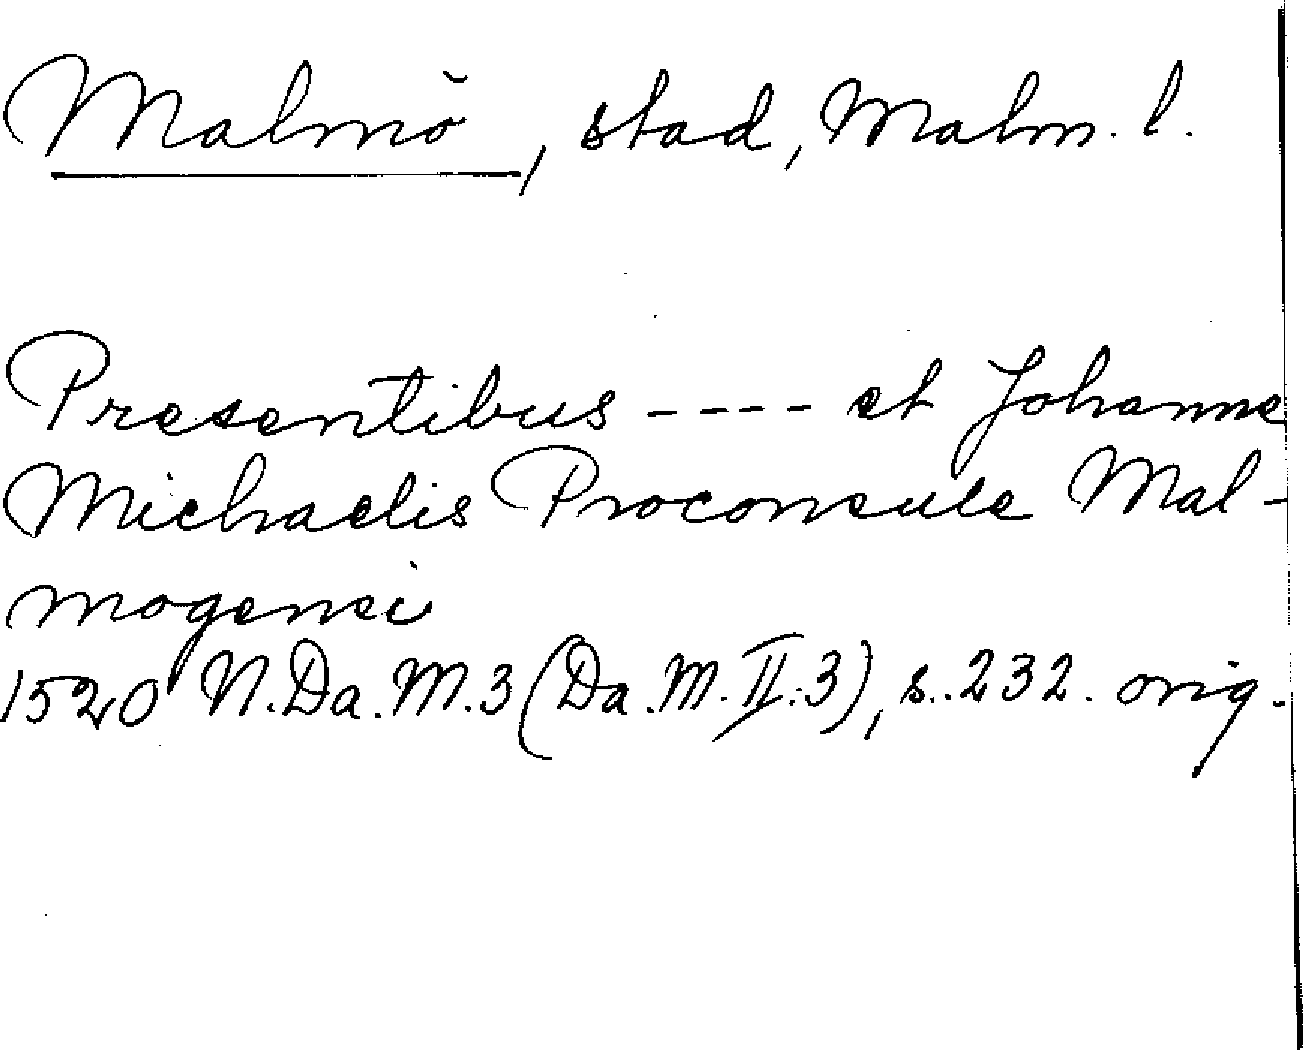 Malmö, stad, Malm. l.
Presentibus ---- et Johanne
Michaelis Proconsule Mal-
mogensi
1520 N.Da.M.3 (Da.M.II.3), s.232. orig.